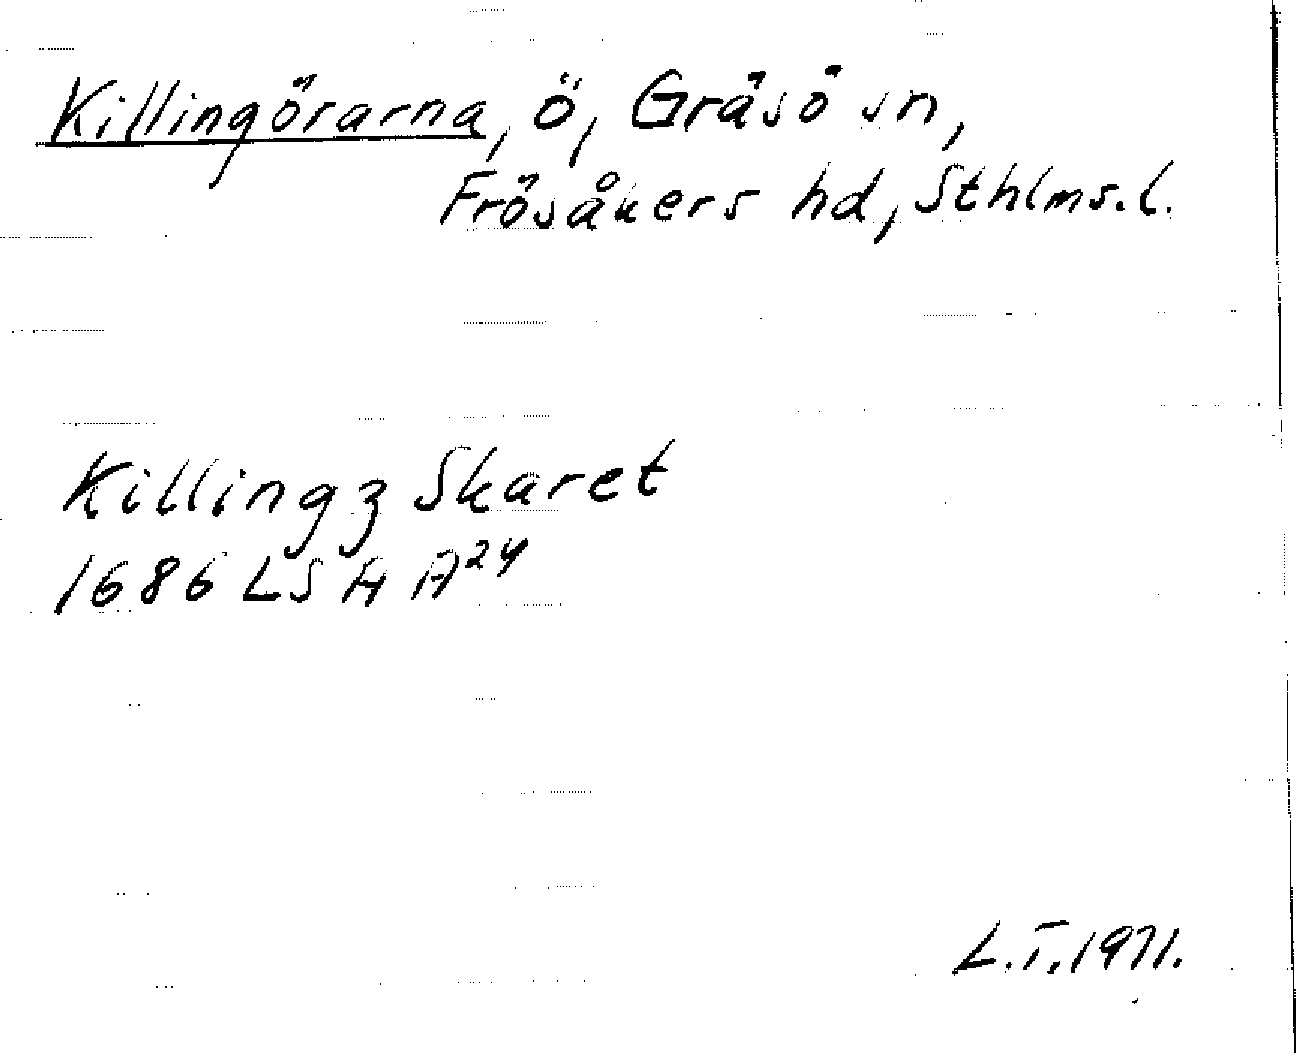 Killingörarna, ö, Gräsö sn,
Frösåkers hd, Sthlms.l.
Killingz Skaret
1686 LSA A24
L.T.1971.